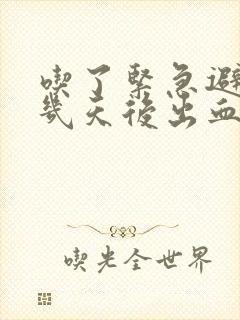 喫了緊急避
幾天後出血
喫光全世界